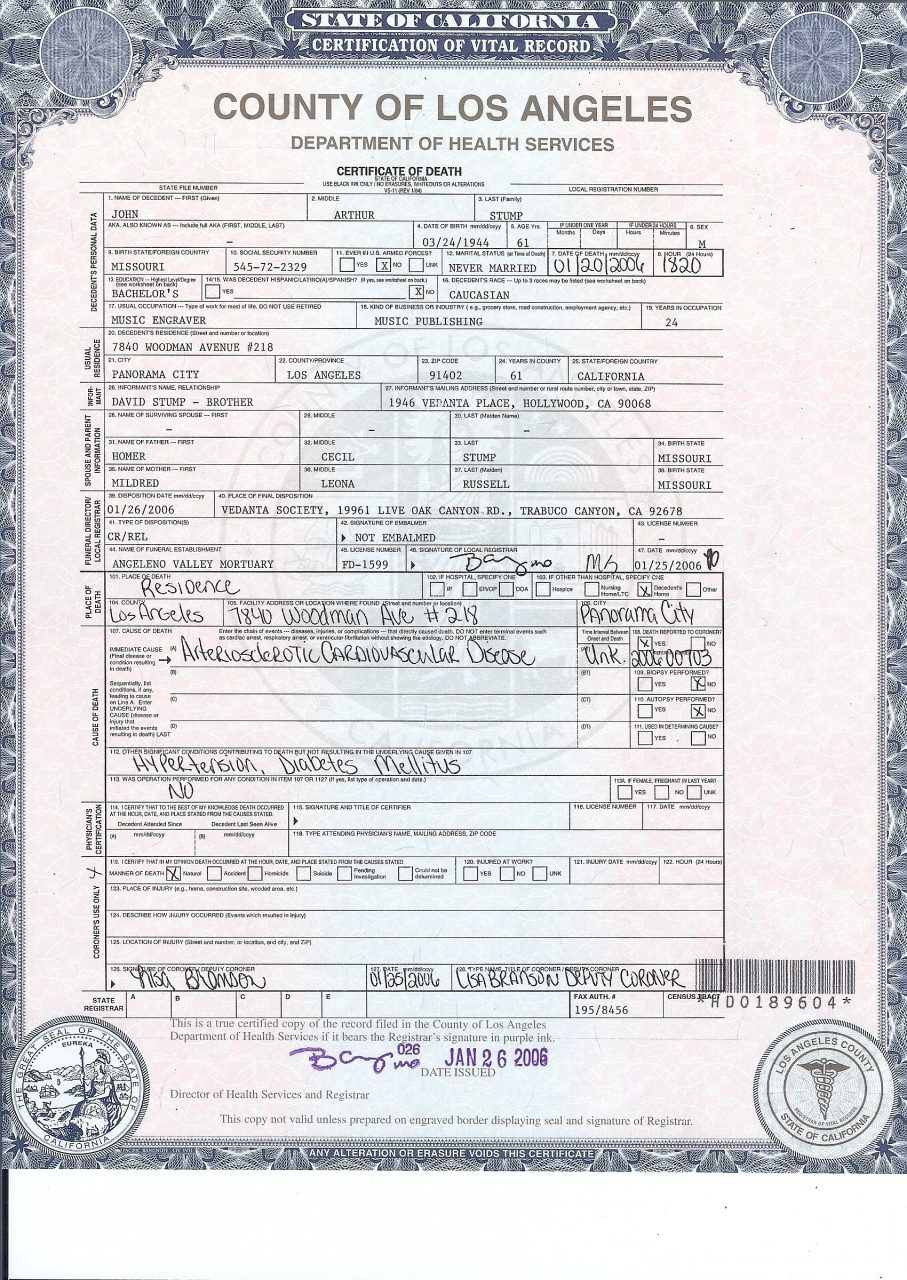 STATE OF CALIFORNIA
CERTIFICATION OF VITAL RECORD
COUNTY OF LOS ANGELES
DEPARTMENT OF HEALTH SERVICES
CERTIFICATE OF DEATH
STATE OF CALIFORNIA
USE BLACK INK ONLY / NO ERASURES, WHITEOUTS OR ALTERATIONS
VS-11 (REV 1/04)
STATE FILE NUMBER LOCAL REGISTRATION NUMBER
DECEDENT'S PERSONAL DATA
1. NAME OF DECEDENT --- FIRST (Given) 2. MIDDLE 3. LAST (Family)
JOHN ARTHUR STUMP
AKA. ALSO KNOWN AS --- Include full AKA (FIRST, MIDDLE, LAST) 4. DATE OF BIRTH mm/dd/ccyy 5. AGE Yrs. IF UNDER ONE YEAR Months Days IF UNDER 24 HOURS Hours Minutes 6. SEX
– 03/24/1944 61 M
9. BIRTH STATE/FOREIGN COUNTRY 10. SOCIAL SECURITY NUMBER 11. EVER IN U.S. ARMED FORCES? 12. MARITAL STATUS (at Time of Death) 7. DATE OF DEATH mm/dd/ccyy 8. HOUR (24 Hours)
MISSOURI 545-72-2329 YES X NO UNK NEVER MARRIED 01/20/2006 1820
13. EDUCATION --- Highest Level/Degree (see worksheet on back) 14/15. WAS DECEDENT HISPANIC/LATINO(A)/SPANISH? (If yes, see worksheet on back.) 16. DECEDENT'S RACE --- Up to 3 races may be listed (see worksheet on back)
BACHELOR'S YES X NO CAUCASIAN
17. USUAL OCCUPATION --- Type of work for most of life. DO NOT USE RETIRED 18. KIND OF BUSINESS OR INDUSTRY ( e.g., grocery store, road construction, employment agency, etc.) 19. YEARS IN OCCUPATION
MUSIC ENGRAVER MUSIC PUBLISHING 24
USUAL RESIDENCE
20. DECEDENT'S RESIDENCE (Street and number or location)
7840 WOODMAN AVENUE #218
21. CITY 22. COUNTY/PROVINCE 23. ZIP CODE 24. YEARS IN COUNTY 25. STATE/FOREIGN COUNTRY
PANORAMA CITY LOS ANGELES 91402 61 CALIFORNIA
INFORMANT
26. INFORMANT'S NAME, RELATIONSHIP 27. INFORMANT'S MAILING ADDRESS (Street and number or rural route number, city or town, state, ZIP)
DAVID STUMP - BROTHER 1946 VEDANTA PLACE, HOLLYWOOD, CA 90068
SPOUSE AND PARENT INFORMATION
28. NAME OF SURVIVING SPOUSE --- FIRST 29. MIDDLE 30. LAST (Maiden Name)
– – –
31. NAME OF FATHER --- FIRST 32. MIDDLE 33. LAST 34. BIRTH STATE
HOMER CECIL STUMP MISSOURI
35. NAME OF MOTHER --- FIRST 36. MIDDLE 37. LAST (Maiden) 38. BIRTH STATE
MILDRED LEONA RUSSELL MISSOURI
FUNERAL DIRECTOR/ LOCAL REGISTRAR
39. DISPOSITION DATE mm/dd/ccyy 40. PLACE OF FINAL DISPOSITION
01/26/2006 VEDANTA SOCIETY, 19961 LIVE OAK CANYON RD., TRABUCO CANYON, CA 92678
41. TYPE OF DISPOSITION(S) 42. SIGNATURE OF EMBALMER 43. LICENSE NUMBER
CR/REL NOT EMBALMED –
44. NAME OF FUNERAL ESTABLISHMENT 45. LICENSE NUMBER 46. SIGNATURE OF LOCAL REGISTRAR 47. DATE mm/dd/ccyy
ANGELENO VALLEY MORTUARY FD-1599 01/25/2006
PLACE OF DEATH
101. PLACE OF DEATH 102. IF HOSPITAL, SPECIFY ONE 103. IF OTHER THAN HOSPITAL, SPECIFY ONE
Residence IP ER/OP DOA Hospice Nursing Home/LTC X Decedent's Home Other
104. COUNTY 105. FACILITY ADDRESS OR LOCATION WHERE FOUND (Street and number or location) 106. CITY
Los Angeles 7840 Woodman Ave #218 Panorama City
CAUSE OF DEATH
107. CAUSE OF DEATH Enter the chain of events --- diseases, injuries, or complications --- that directly caused death. DO NOT enter terminal events such as cardiac arrest, respiratory arrest, or ventricular fibrillation without showing the etiology. DO NOT ABBREVIATE. Time Interval Between Onset and Death 108. DEATH REPORTED TO CORONER?
IMMEDIATE CAUSE (Final disease or condition resulting in death) (A) Arteriosclerotic Cardiovascular Disease (AT) Unk. X YES NO
2006 00703
(B) (BT) 109. BIOPSY PERFORMED?
YES X NO
Sequentially, list conditions, if any, leading to cause on Line A. Enter UNDERLYING CAUSE (disease or injury that initiated the events resulting in death) LAST
(C) (CT) 110. AUTOPSY PERFORMED?
YES X NO
(D) (DT) 111. USED IN DETERMINING CAUSE?
YES NO
112. OTHER SIGNIFICANT CONDITIONS CONTRIBUTING TO DEATH BUT NOT RESULTING IN THE UNDERLYING CAUSE GIVEN IN 107
Hypertension, Diabetes Mellitus
113. WAS OPERATION PERFORMED FOR ANY CONDITION IN ITEM 107 OR 112? (If yes, list type of operation and date.) 113A. IF FEMALE, PREGNANT IN LAST YEAR?
NO YES NO UNK
PHYSICIAN'S CERTIFICATION
114. I CERTIFY THAT TO THE BEST OF MY KNOWLEDGE DEATH OCCURRED AT THE HOUR, DATE, AND PLACE STATED FROM THE CAUSES STATED. 115. SIGNATURE AND TITLE OF CERTIFIER 116. LICENSE NUMBER 117. DATE mm/dd/ccyy
Decedent Attended Since Decedent Last Seen Alive
(A) mm/dd/ccyy (B) mm/dd/ccyy 118. TYPE ATTENDING PHYSICIAN'S NAME, MAILING ADDRESS, ZIP CODE
CORONER'S USE ONLY 4
119. I CERTIFY THAT IN MY OPINION DEATH OCCURRED AT THE HOUR, DATE, AND PLACE STATED FROM THE CAUSES STATED. 120. INJURED AT WORK? 121. INJURY DATE mm/dd/ccyy 122. HOUR (24 Hours)
MANNER OF DEATH X Natural Accident Homicide Suicide Pending Investigation Could not be determined YES NO UNK
123. PLACE OF INJURY (e.g., home, construction site, wooded area, etc.)
124. DESCRIBE HOW INJURY OCCURRED (Events which resulted in injury)
125. LOCATION OF INJURY (Street and number, or location, and city, and ZIP)
126. SIGNATURE OF CORONER / DEPUTY CORONER 127. DATE mm/dd/ccyy 128. TYPE NAME, TITLE OF CORONER / DEPUTY CORONER
Lisa Branson 01/25/2006 LISA BRANSON DEPUTY CORONER
STATE REGISTRAR A B C D E FAX AUTH. # CENSUS TRACT
195/8456
*HD0189604*
This is a true certified copy of the record filed in the County of Los Angeles
Department of Health Services if it bears the Registrar's signature in purple ink.
026 JAN 26 2006
DATE ISSUED
Director of Health Services and Registrar
This copy not valid unless prepared on engraved border displaying seal and signature of Registrar.
ANY ALTERATION OR ERASURE VOIDS THIS CERTIFICATE
THE GREAT SEAL OF THE STATE OF CALIFORNIA
EUREKA
LOS ANGELES COUNTY
STATE OF CALIFORNIA